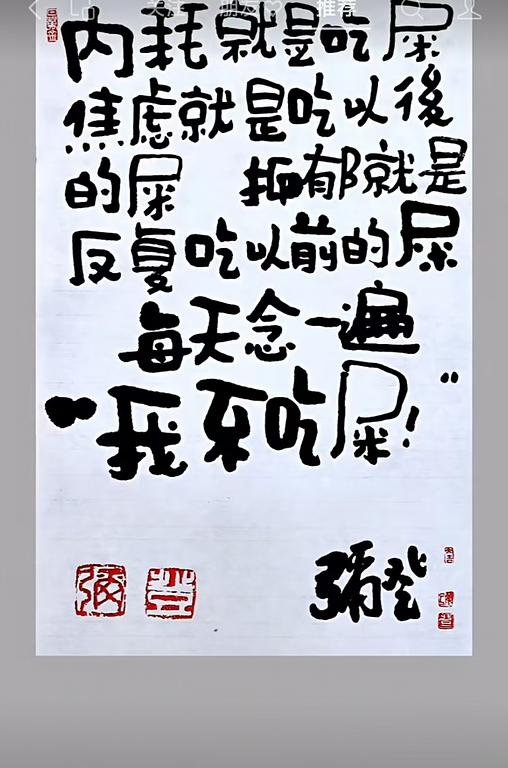 推荐
内耗就是吃屎
焦虑就是吃以後
的屎 抑郁就是
反复吃以前的屎
每天念一遍
"我不吃屎!"